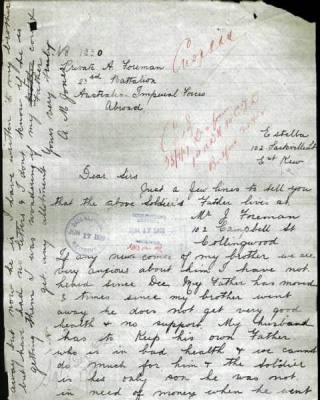 No 1820
Private A. Foreman
23rd Battalion
Australian Imperial Forces
Abroad
Estella
102 Sackville St
Est Kew
Dear Sirs
Just a few lines to tell you
that the above Soldier's Father lives at
Mr J Foreman
102 Campbell St
Collingwood
If any news comes of my brother we are
very anxious about him I have not
heard since Dec. My Father has moved
3 times since my brother went
away he does not get very good
health & no support. My husband
has to Keep his own Father
who is in bad health & we cannot
do much for him & the Soldier
is his only son he was not
in need of money when he went
away but now he is I have written to my brother
but have had no letters & I dont know if he is
getting them I was wondering if my Father could
get any allotment
Yours very truly
A M Jones
JUN 17 1918